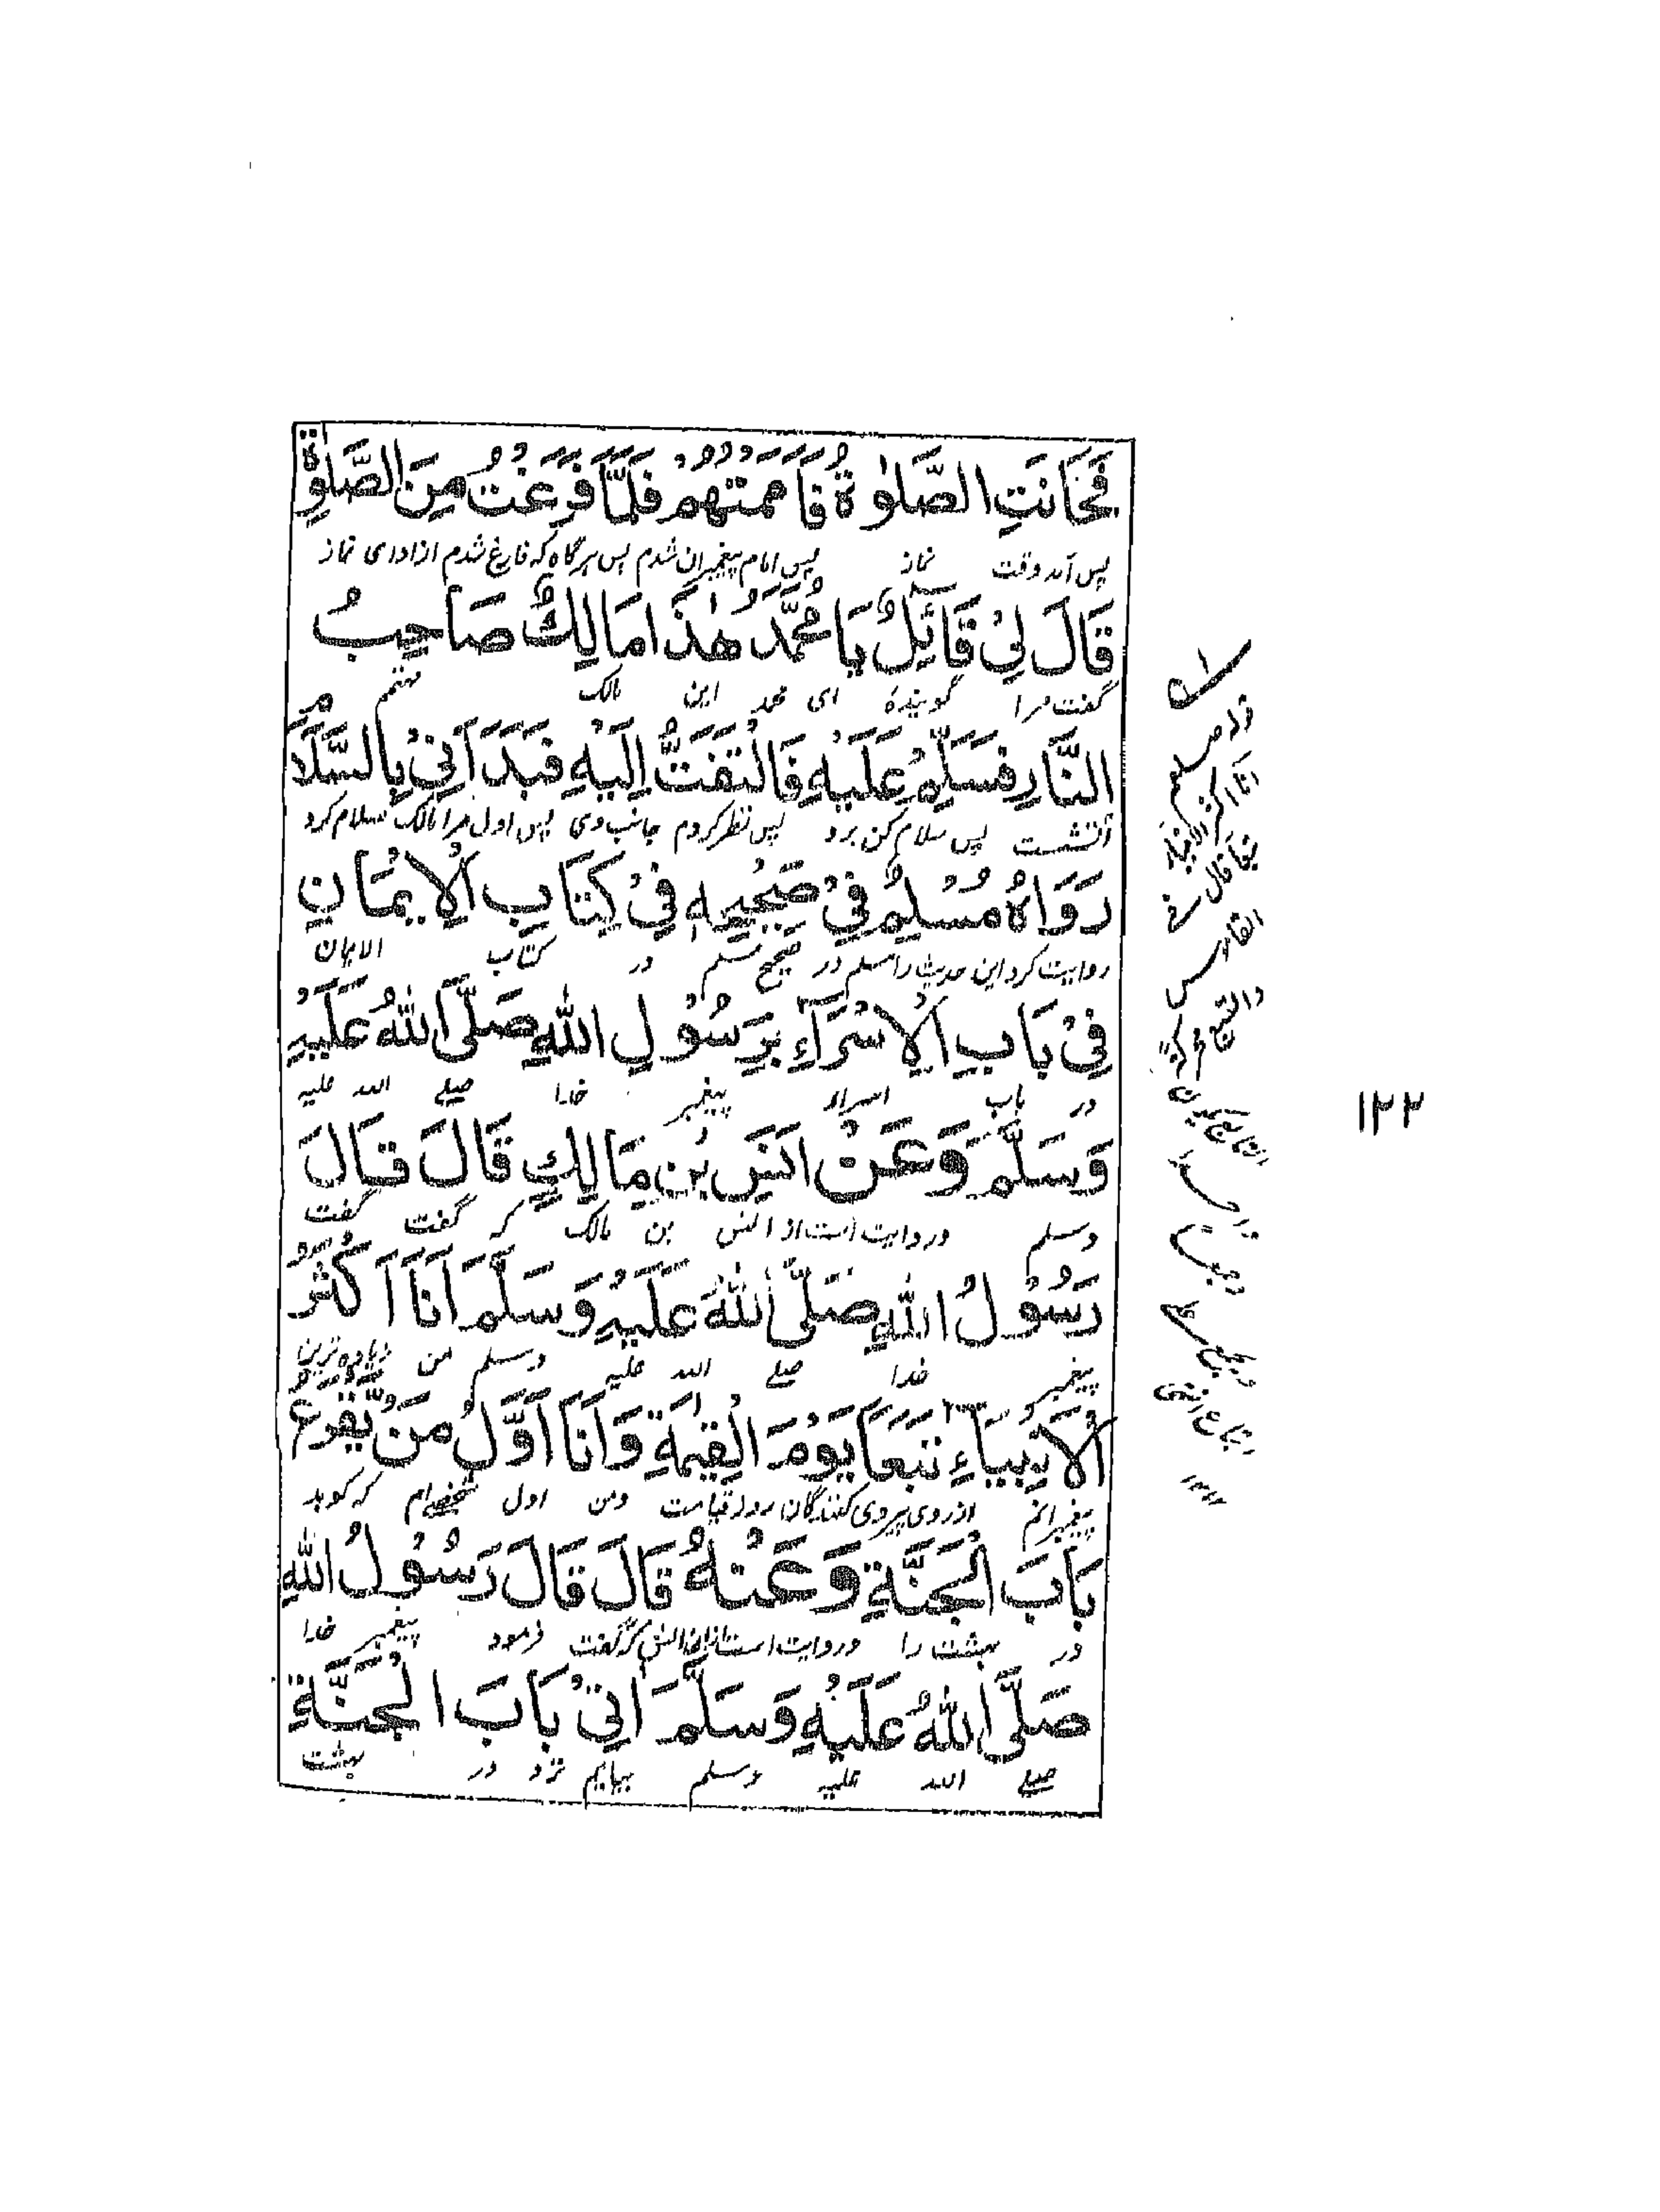 فَحَانَتِ الصَّلٰوةُ فَاَمَمْتُهُمْ فَلَمَّا فَرَغْتُ مِنَ الصَّلٰوةِ
پس آمد وقت نماز پس امام پیغمبران شدم پس هرگاه که فارغ شدم از ادای نماز
قَالَ لِیْ قَائِلٌ یَا مُحَمَّدُ هٰذَا مَالِكٌ صَاحِبُ
گفت مرا گوینده ای محمد این مالک مهتمم
النَّارِ فَسَلِّمْ عَلَیْهِ فَالْتَفَتُّ اِلَیْهِ فَبَدَأَنِیْ بِالسَّلَامِ
آتشست پس سلام کن برو پس نظر کردم جانب وی پس اول مرا مالک سلام کرد
رَوَاهُ مُسْلِمٌ فِیْ صَحِیْحِهٖ فِیْ كِتَابِ الْاِیْمَانِ
روایت کرد این حدیث را مسلم در صحیح مسلم در کتاب الایمان
فِیْ بَابِ الْاِسْرَآءِ بِرَسُوْلِ اللهِ صَلَّی اللهُ عَلَیْهِ
در باب اسراء پیغمبر خدا صلے الله علیه
وَسَلَّمَ وَعَنْ اَنَسِ بْنِ مَالِكٍ قَالَ قَالَ
وسلم و روایت است از انس بن مالک که گفت گفت
رَسُوْلُ اللهِ صَلَّی اللهُ عَلَیْهِ وَسَلَّمَ اَنَا اَكْثَرُ
پیغمبر خدا صلے الله علیه وسلم من زیاده ترین
الْاَنْبِیَاءِ تَبَعًا یَوْمَ الْقِیٰمَةِ وَاَنَا اَوَّلُ مَنْ یَّقْرَعُ
پیغمبرانم از روی پیروی کنندگان روز قیامت ومن اول شخصی ام که کوبد
بَابَ الْجَنَّةِ وَعَنْهُ قَالَ قَالَ رَسُوْلُ اللهِ
در بهشت را و روایت است از انس که گفت فرمود پیغمبر خدا
صَلَّی اللهُ عَلَیْهِ وَسَلَّمَ اٰتِیْ بَابَ الْجَنَّةِ
صلے الله علیه وسلم بیایم نزد در بهشت
قوله صلعم
انا اكثر الانبياء
تبعا قال في
القاموس
۱۲۲